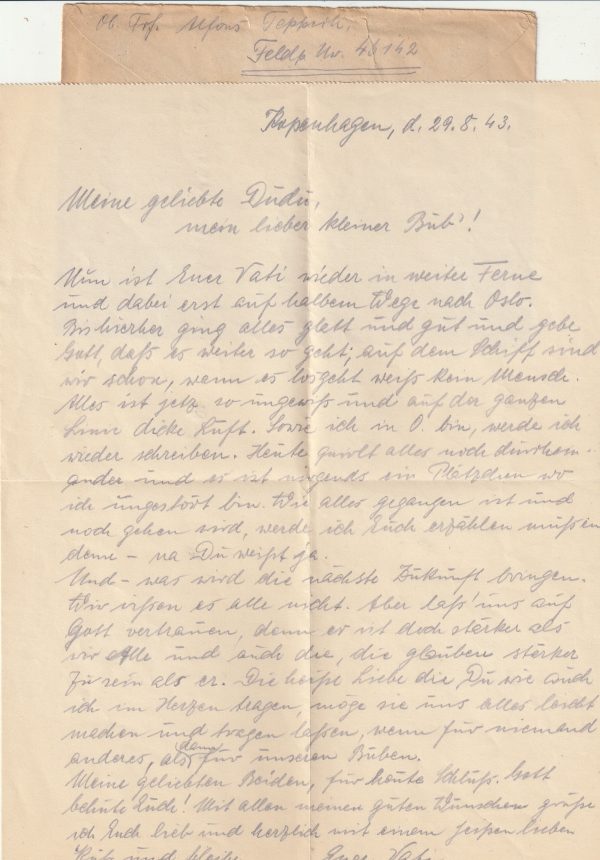 Ob. Frf. Alfons Teppich,
Feldp Nr. 46142
Kopenhagen, d. 29.8.43.
Meine geliebte Dudu,
mein lieber kleiner Bub'!
Nun ist Euer Vati wieder in weiter Ferne
und dabei erst auf halbem Wege nach Oslo.
Bis hierher ging alles glatt und gut und gebe
Gott, daß es weiter so geht; auf dem Schiff sind
wir schon, wann es losgeht weiß kein Mensch.
Alles ist jetz so ungewiß und auf der ganzen
Linie dicke Luft. Sowie ich in O. bin, werde ich
wieder schreiben. Heute alles noch durchein-
ander und es ist nirgends ein Plätzchen wo
ich ungestört bin. Wie alles gegangen ist und
noch gehen wird, werde ich Euch erzählen müßen
denn – na Du weißt ja.
Und – was wird die nächste Zukunft bringen.
Wir wißen es alle nicht. Aber laß' uns auf
Gott vertrauen, denn er ist doch stärker als
wir Alle und auch die, die glauben stärker
zu sein als er. Die heiße Liebe die Du wie auch
ich im Herzen tragen, möge sie uns alles leicht
machen und tragen laßen, wenn für niemand
anderes, als dann für unseren Buben.
Meine geliebten Beiden, für heute Schluß. Gott
behüte Euch! Mit allen meinen guten Wünschen grüße
ich Euch lieb und herzlich mit einem heißen lieben
Kuß und bleibe Euer Vati